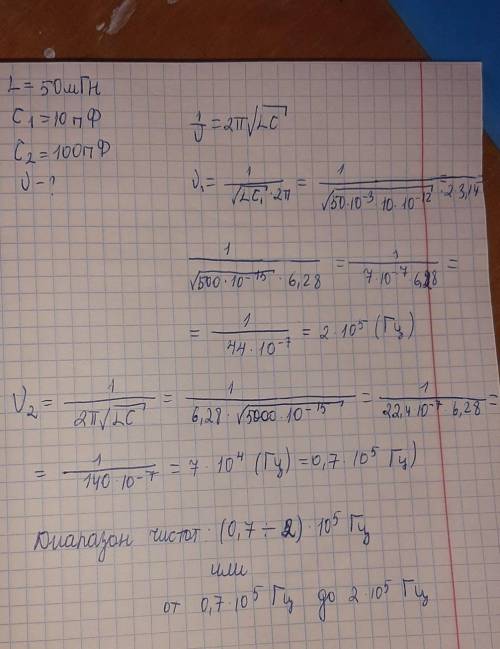 L = 50 мГн
C₁ = 10 пФ
C₂ = 100 пФ
ν - ?
1/ν = 2π√LC
ν₁ = 1/(√LC₁ · 2π) = 1/(√50·10⁻³ · 10·10⁻¹² · 2·3,14) =
1/(√500·10⁻¹⁵ · 6,28) = 1/(7·10⁻⁷ · 6,28) =
= 1/(44·10⁻⁷) = 2·10⁵ (Гц)
ν₂ = 1/(2π√LC) = 1/(6,28 · √5000·10⁻¹⁵) = 1/(22,4·10⁻⁷ · 6,28) =
= 1/(140·10⁻⁷) = 7·10⁴ (Гц) = 0,7·10⁵ Гц)
Диапазон чистот · (0,7 ÷ 2) · 10⁵ Гц
или
от 0,7·10⁵ Гц до 2·10⁵ Гц